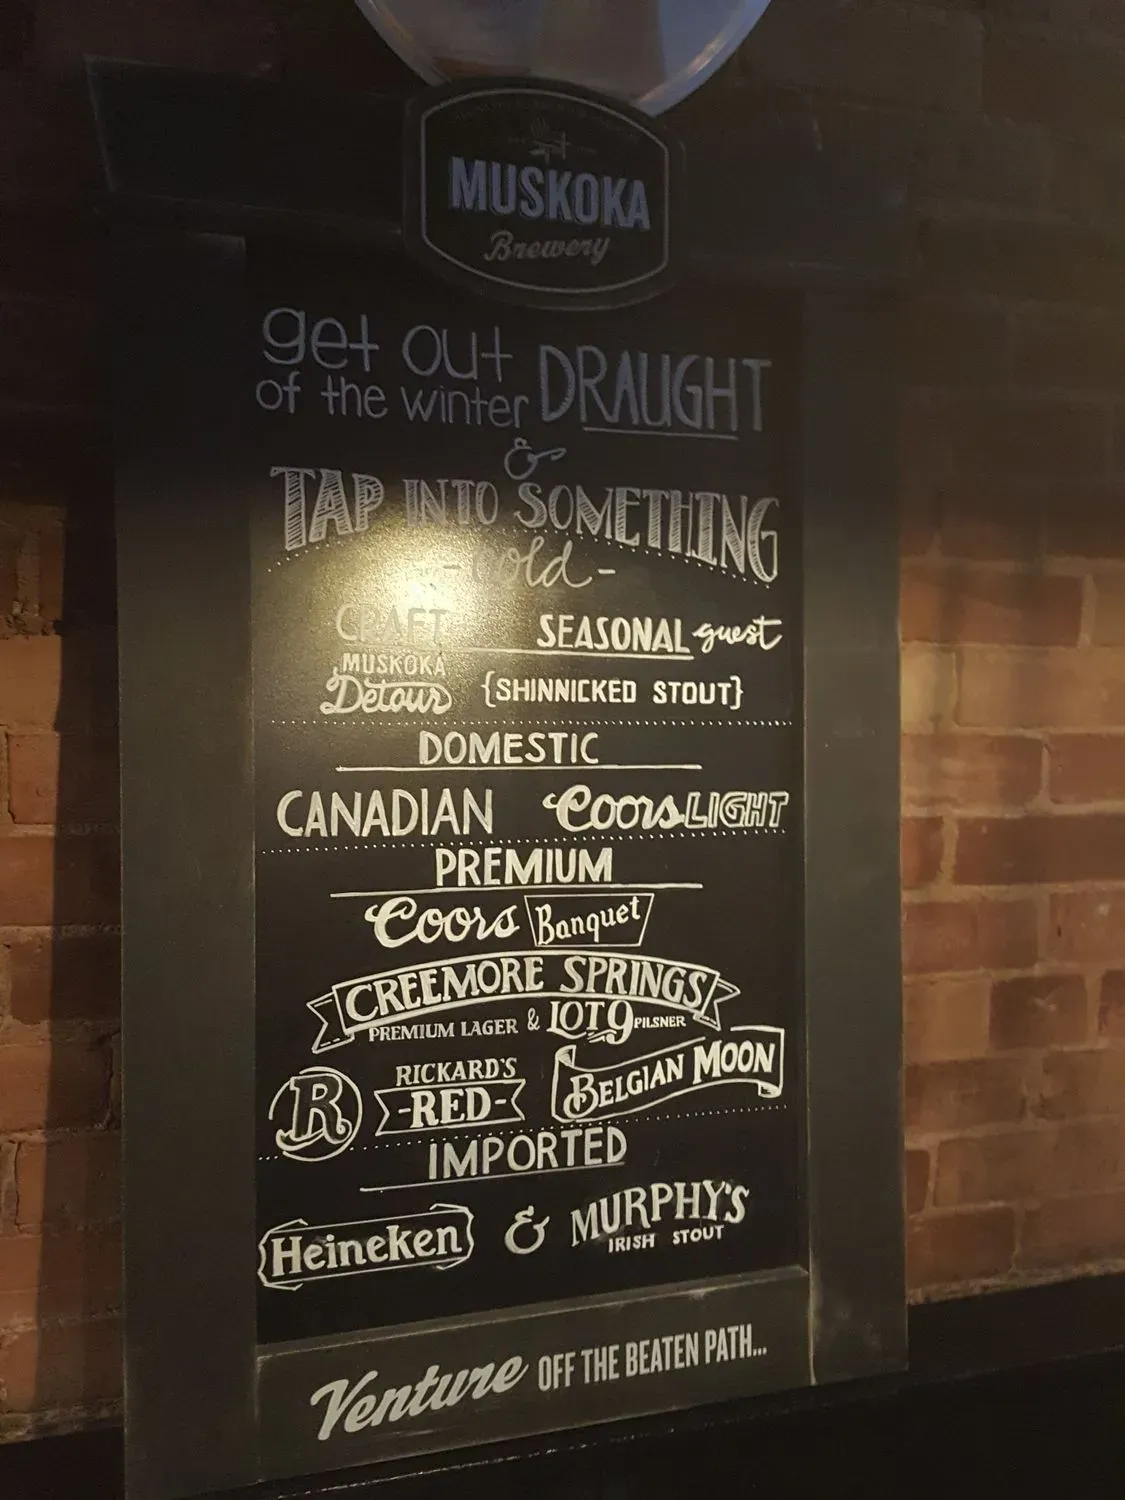 MUSKOKA
Brewery
get out
of the winter DRAUGHT
&
TAP INTO SOMETHING
- cold -
CRAFT
SEASONAL guest
MUSKOKA
Detour
{SHINNICKED STOUT}
DOMESTIC
CANADIAN Coors LIGHT
PREMIUM
Coors Banquet
CREEMORE SPRINGS
PREMIUM LAGER & LOT 9 PILSNER
R RICKARD'S
-RED-
BELGIAN MOON
IMPORTED
Heineken & MURPHY'S
IRISH STOUT
Venture OFF THE BEATEN PATH...